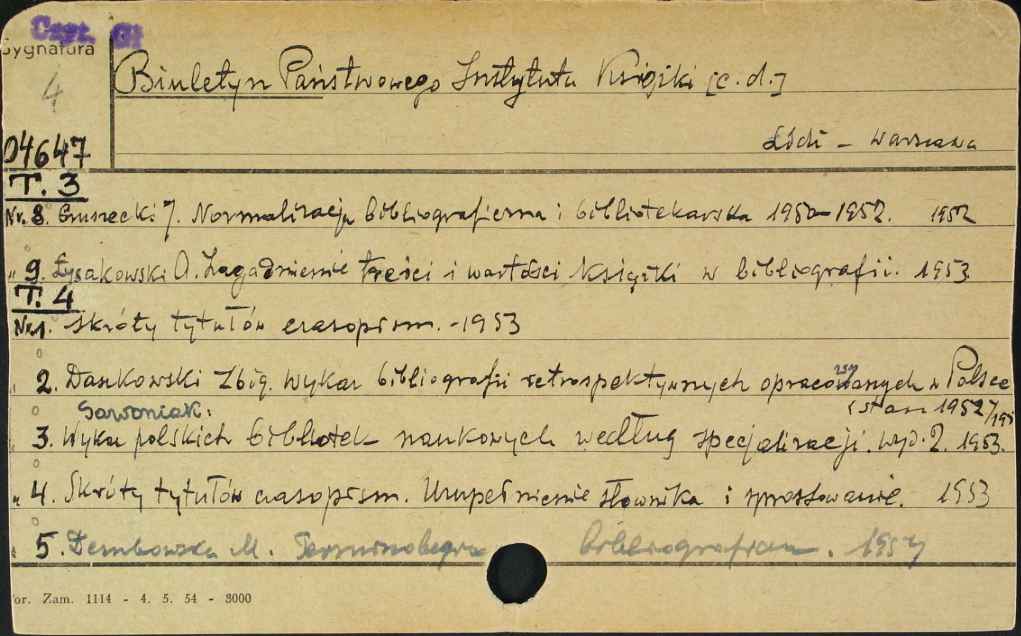 Czyt. Gł
Sygnatura
4
Biuletyn Państwowego Instytutu Książki [c.d.]
Łódź - Warszawa
04647
T. 3
Nr. 8. Gruszecki J. Normalizacja bibliograficzna i bibliotekarska 1950-1952. 1952
" 9. Łysakowski A. Zagadnienie treści i wartości książki w bibliografii. 1953
T. 4
Nr. 1. Skróty tytułów czasopism. - 1953
" 2. Daszkowski Zbig. Wykaz bibliografii retrospektywnych opracowanych w Polsce
(stan 1952/195
Sawoniak:
" 3. Wykaz polskich bibliotek naukowych według specjalizacji. wyd. 2. 1953.
" 4. Skróty tytułów czasopism. Uzupełnienie słownika i sprostowanie. 1953
" 5. Dembowska M. Terminologia bibliograficzna. 1954
or. Zam. 1114 - 4. 5. 54 - 3000